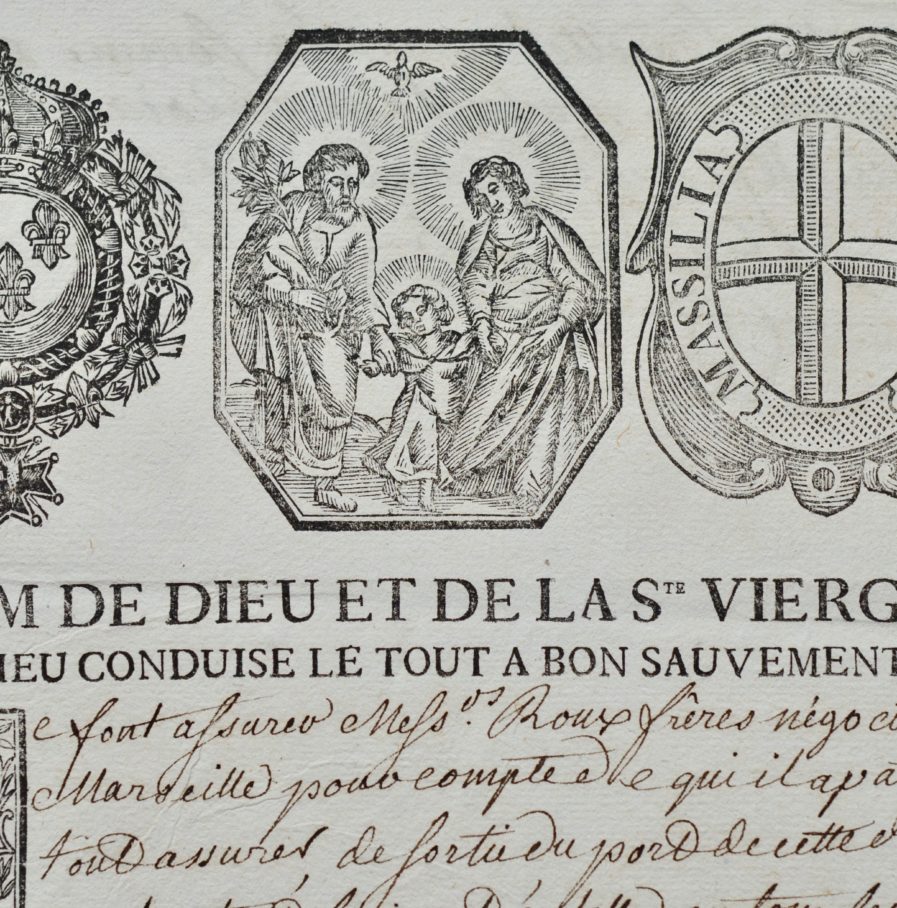 MASSILIA
M DE DIEU ET DE LA STE VIERG
IEU CONDUISE LE TOUT A BON SAUVEMENT
e font assurer Messrs. Roux frères négoci
Marseille pour compte de qui il apa
tout assurés, de sortie du port de cette